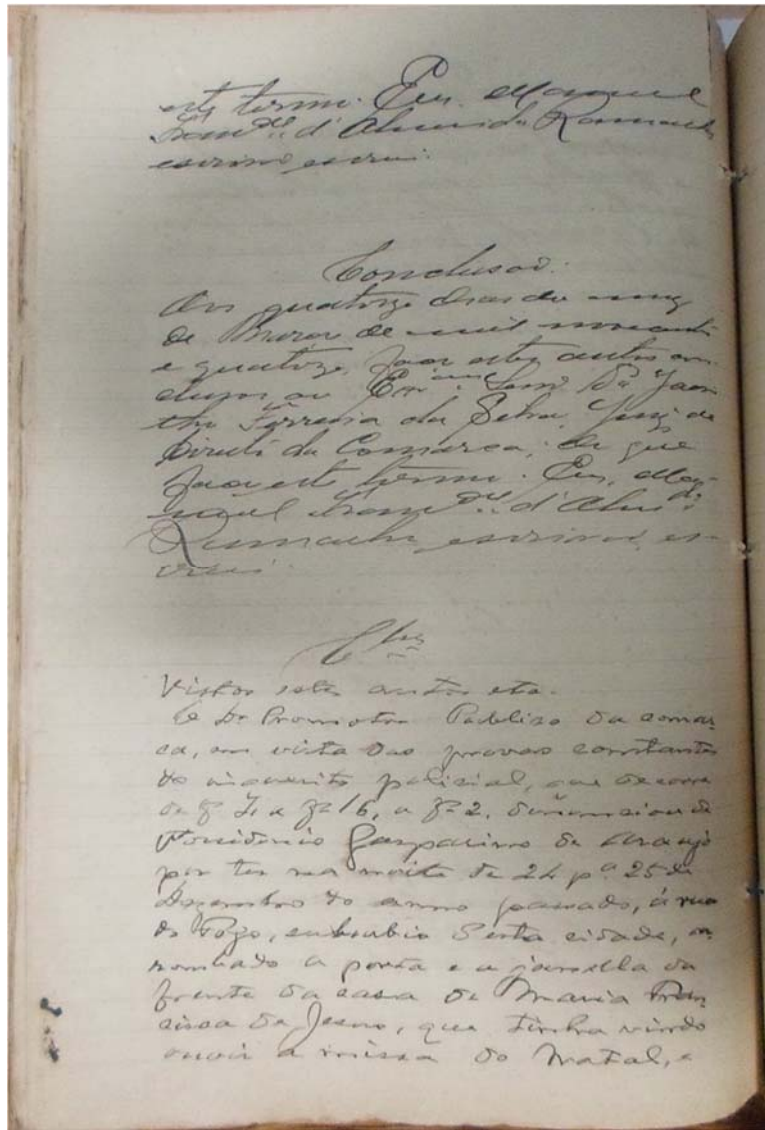 este termo. Eu, Manuel
Fran.co d'Almeida Ramalho
escrivão escrevi.
Conclusão.
Aos quatorze dias do mez
de Março de mil novecentos
e quatorze, faço estes autos con-
clusos ao Exmo. Senr. Dr. Jacin
tho Ferreira da Silva, Juiz de
Direito da Comarca; do que
faço este termo. Eu, Ma-
nuel Fran.co d'Almda
Ramalho, escrivão, es-
crevi.
Clsos
Vistos estes autos etc.
O Dr Promotor Publico da comar
ca, em vista das provas constantes
do inquerito policial, que decorre
de f. a f. 16, a f. 2, denunciou de
Possidonio Gasparino de Araujo
por ter na noite de 24 pa 25 de
Dezembro do anno passado, á rua
do Poço, suburbio desta cidade, ar
rombado a porta e a janella da
frente da casa de Maria Fran
cisca de Jesus, que tinha vindo
ouvir a missa do Natal, e